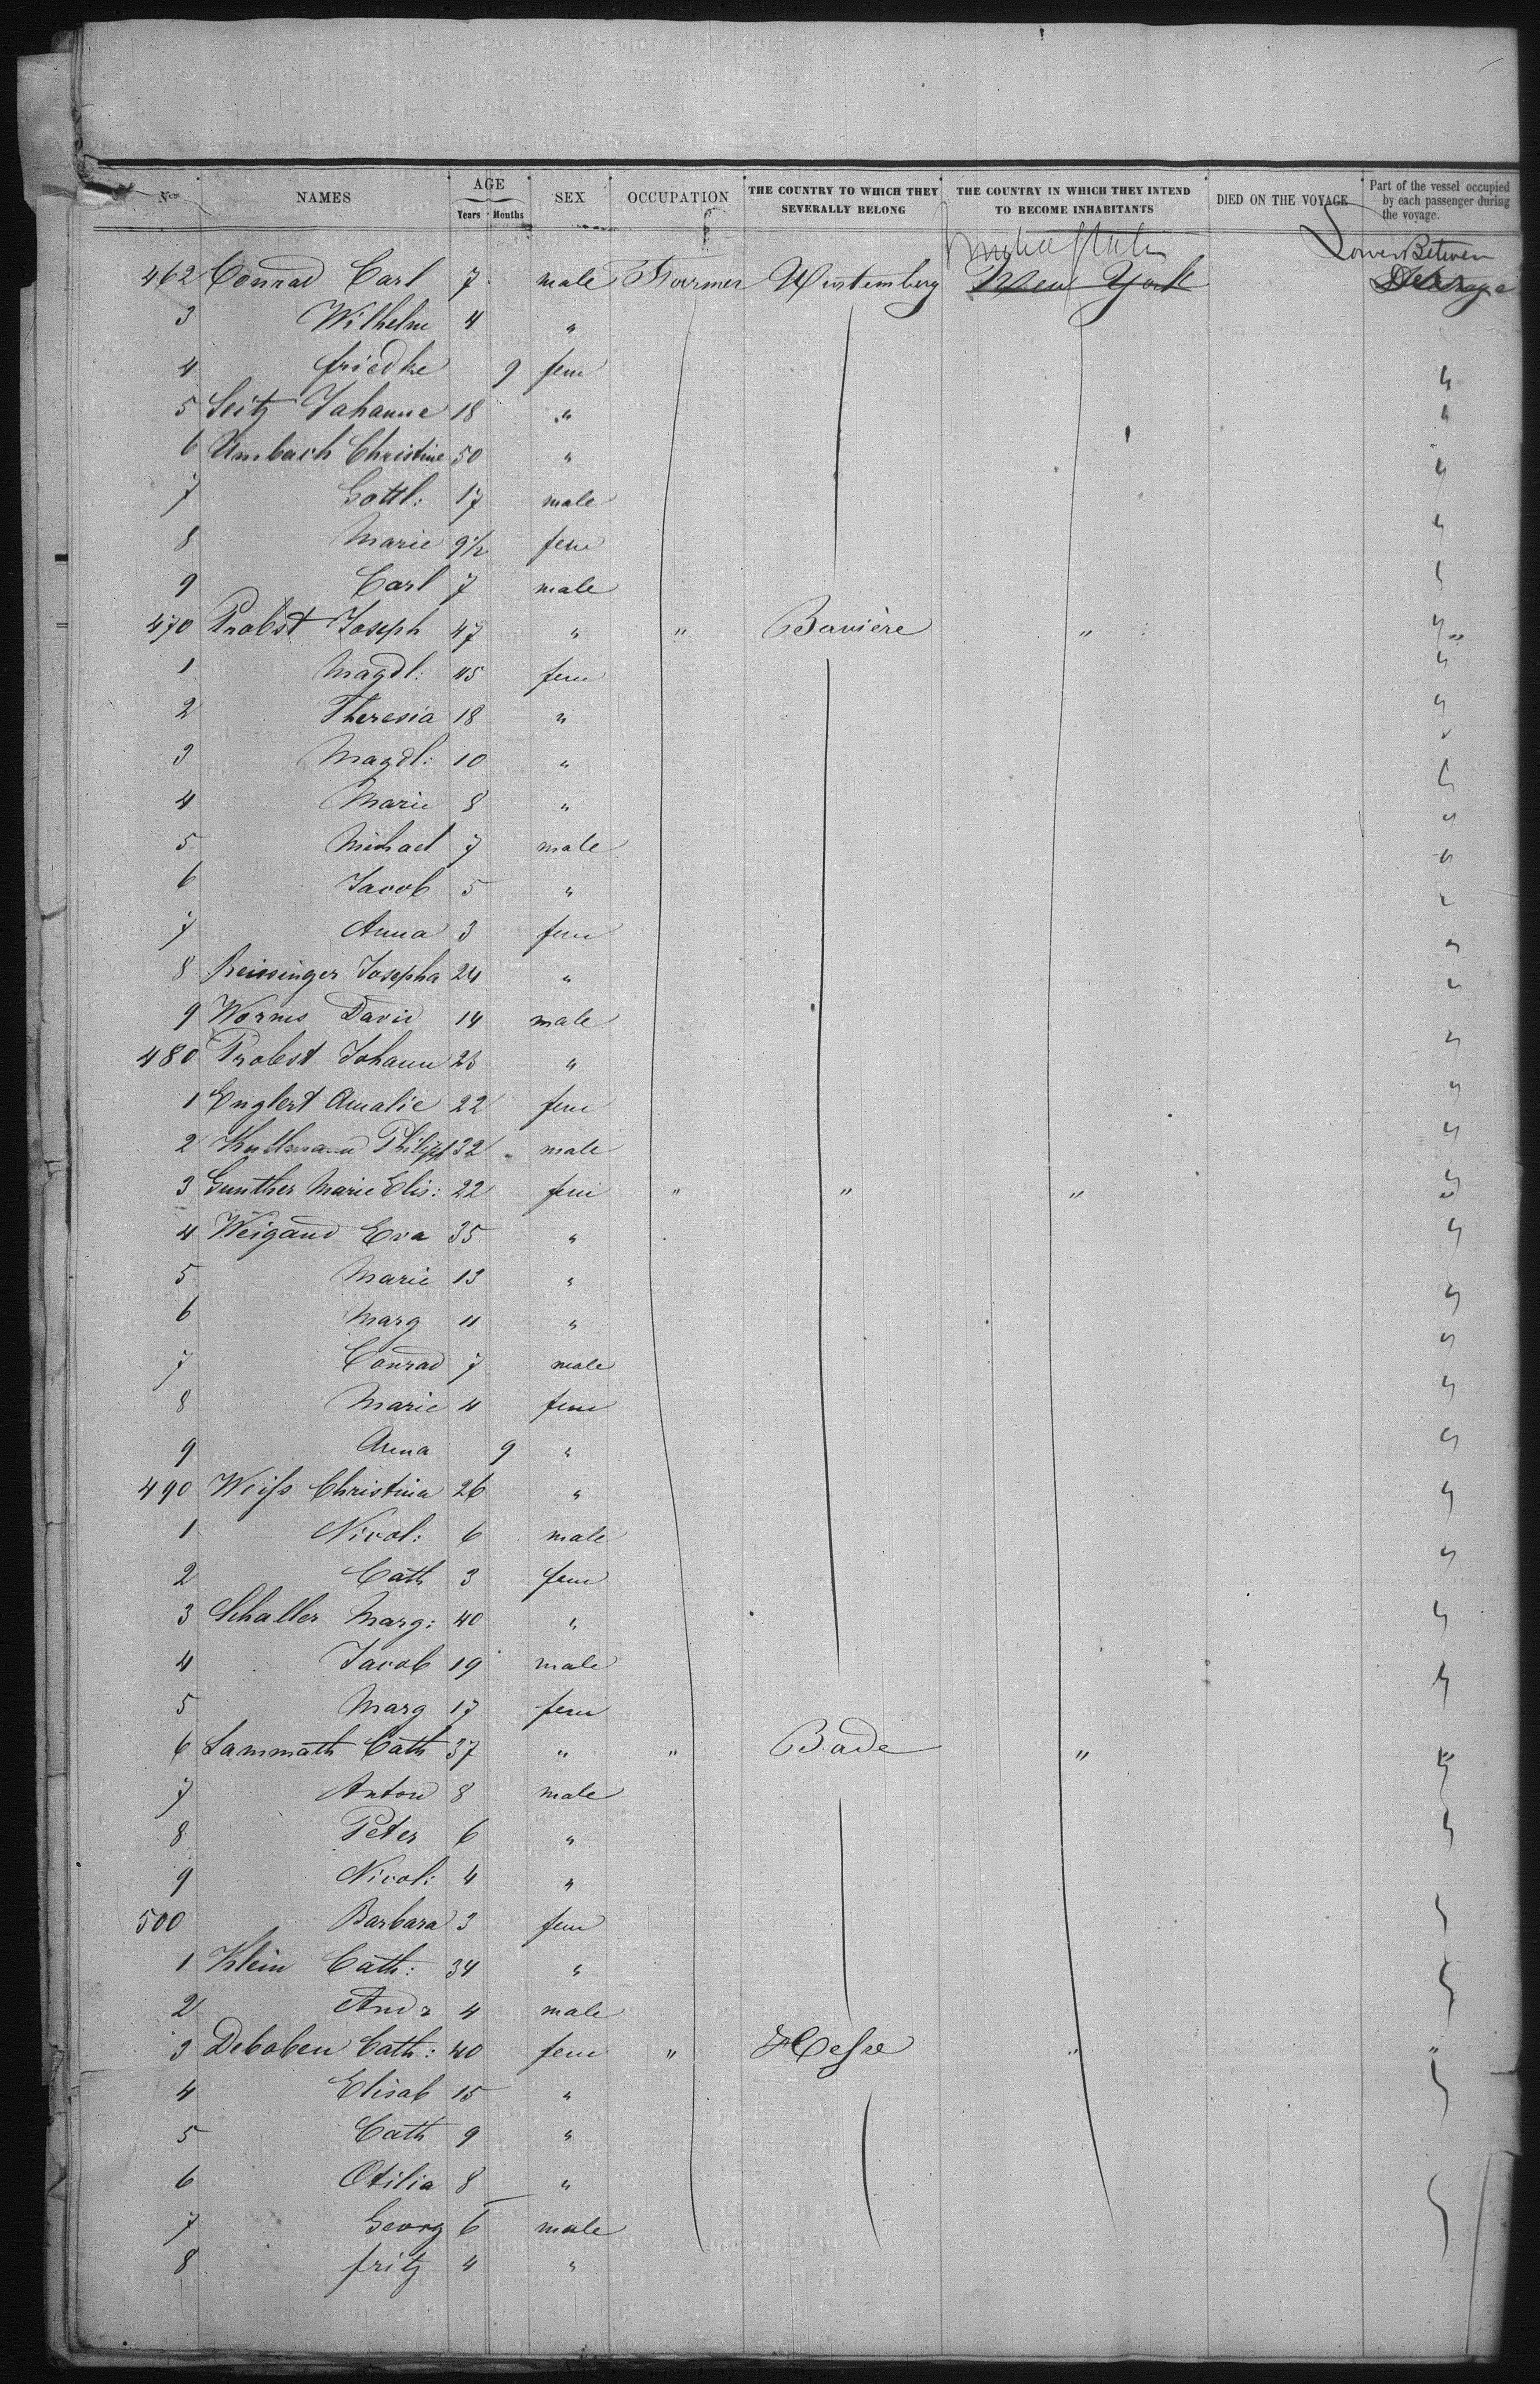 Nos NAMES AGE Years Months SEX OCCUPATION THE COUNTRY TO WHICH THEY SEVERALLY BELONG THE COUNTRY IN WHICH THEY INTEND TO BECOME INHABITANTS DIED ON THE VOYAGE Part of the vessel occupied by each passenger during the voyage.
United States Lower Between
462 Conrad Carl 7 male Farmer Wurtemberg New York
3 Wilhelm 4 "
4 friedke 9 fem "
5 Seitz Johanne 18 " "
6 Umbach Christine 50 " "
7 Gottl: 17 male
8 Marie 9 1/2 fem "
9 Carl 7 male
470 Probst Joseph 47 " " Baviere " "
1 Magdl: 45 fem "
2 Theresia 18 " "
3 Magdl: 10 "
4 Marie 8 "
5 Michael 7 male "
6 Jacob 5 " "
7 Anna 3 fem "
8 Reissinger Josepha 24 " "
9 Worms David 14 male
480 Probst Johann 23 " "
1 Englert Amalie 22 fem "
2 Kullmann Philipp 32 male "
3 Gunther Marie Elis: 22 fem " " " "
4 Weigand Eva 35 " "
5 Marie 13 "
6 Marg 11 " "
7 Conrad 7 male "
8 Marie 4 fem "
9 Anna 9 " "
490 Weiss Christina 26 " "
1 Nicol: 6 male
2 Cath 3 fem "
3 Schaller Marg: 40 " "
4 Jacob 19 male "
5 Marg 17 fem
6 Lammath Cath 37 " " Bade " "
7 Anton 8 male
8 Peter 6 " "
9 Nicol: 4 "
500 Barbara 3 fem
1 Klein Cath: 34 "
2 Andr 4 male
3 Deboben Cath: 40 fem " Hesse " "
4 Elisab 15 "
5 Cath 9 "
6 Otilia 8 "
7 Georg 6 male
8 fritz 4 "